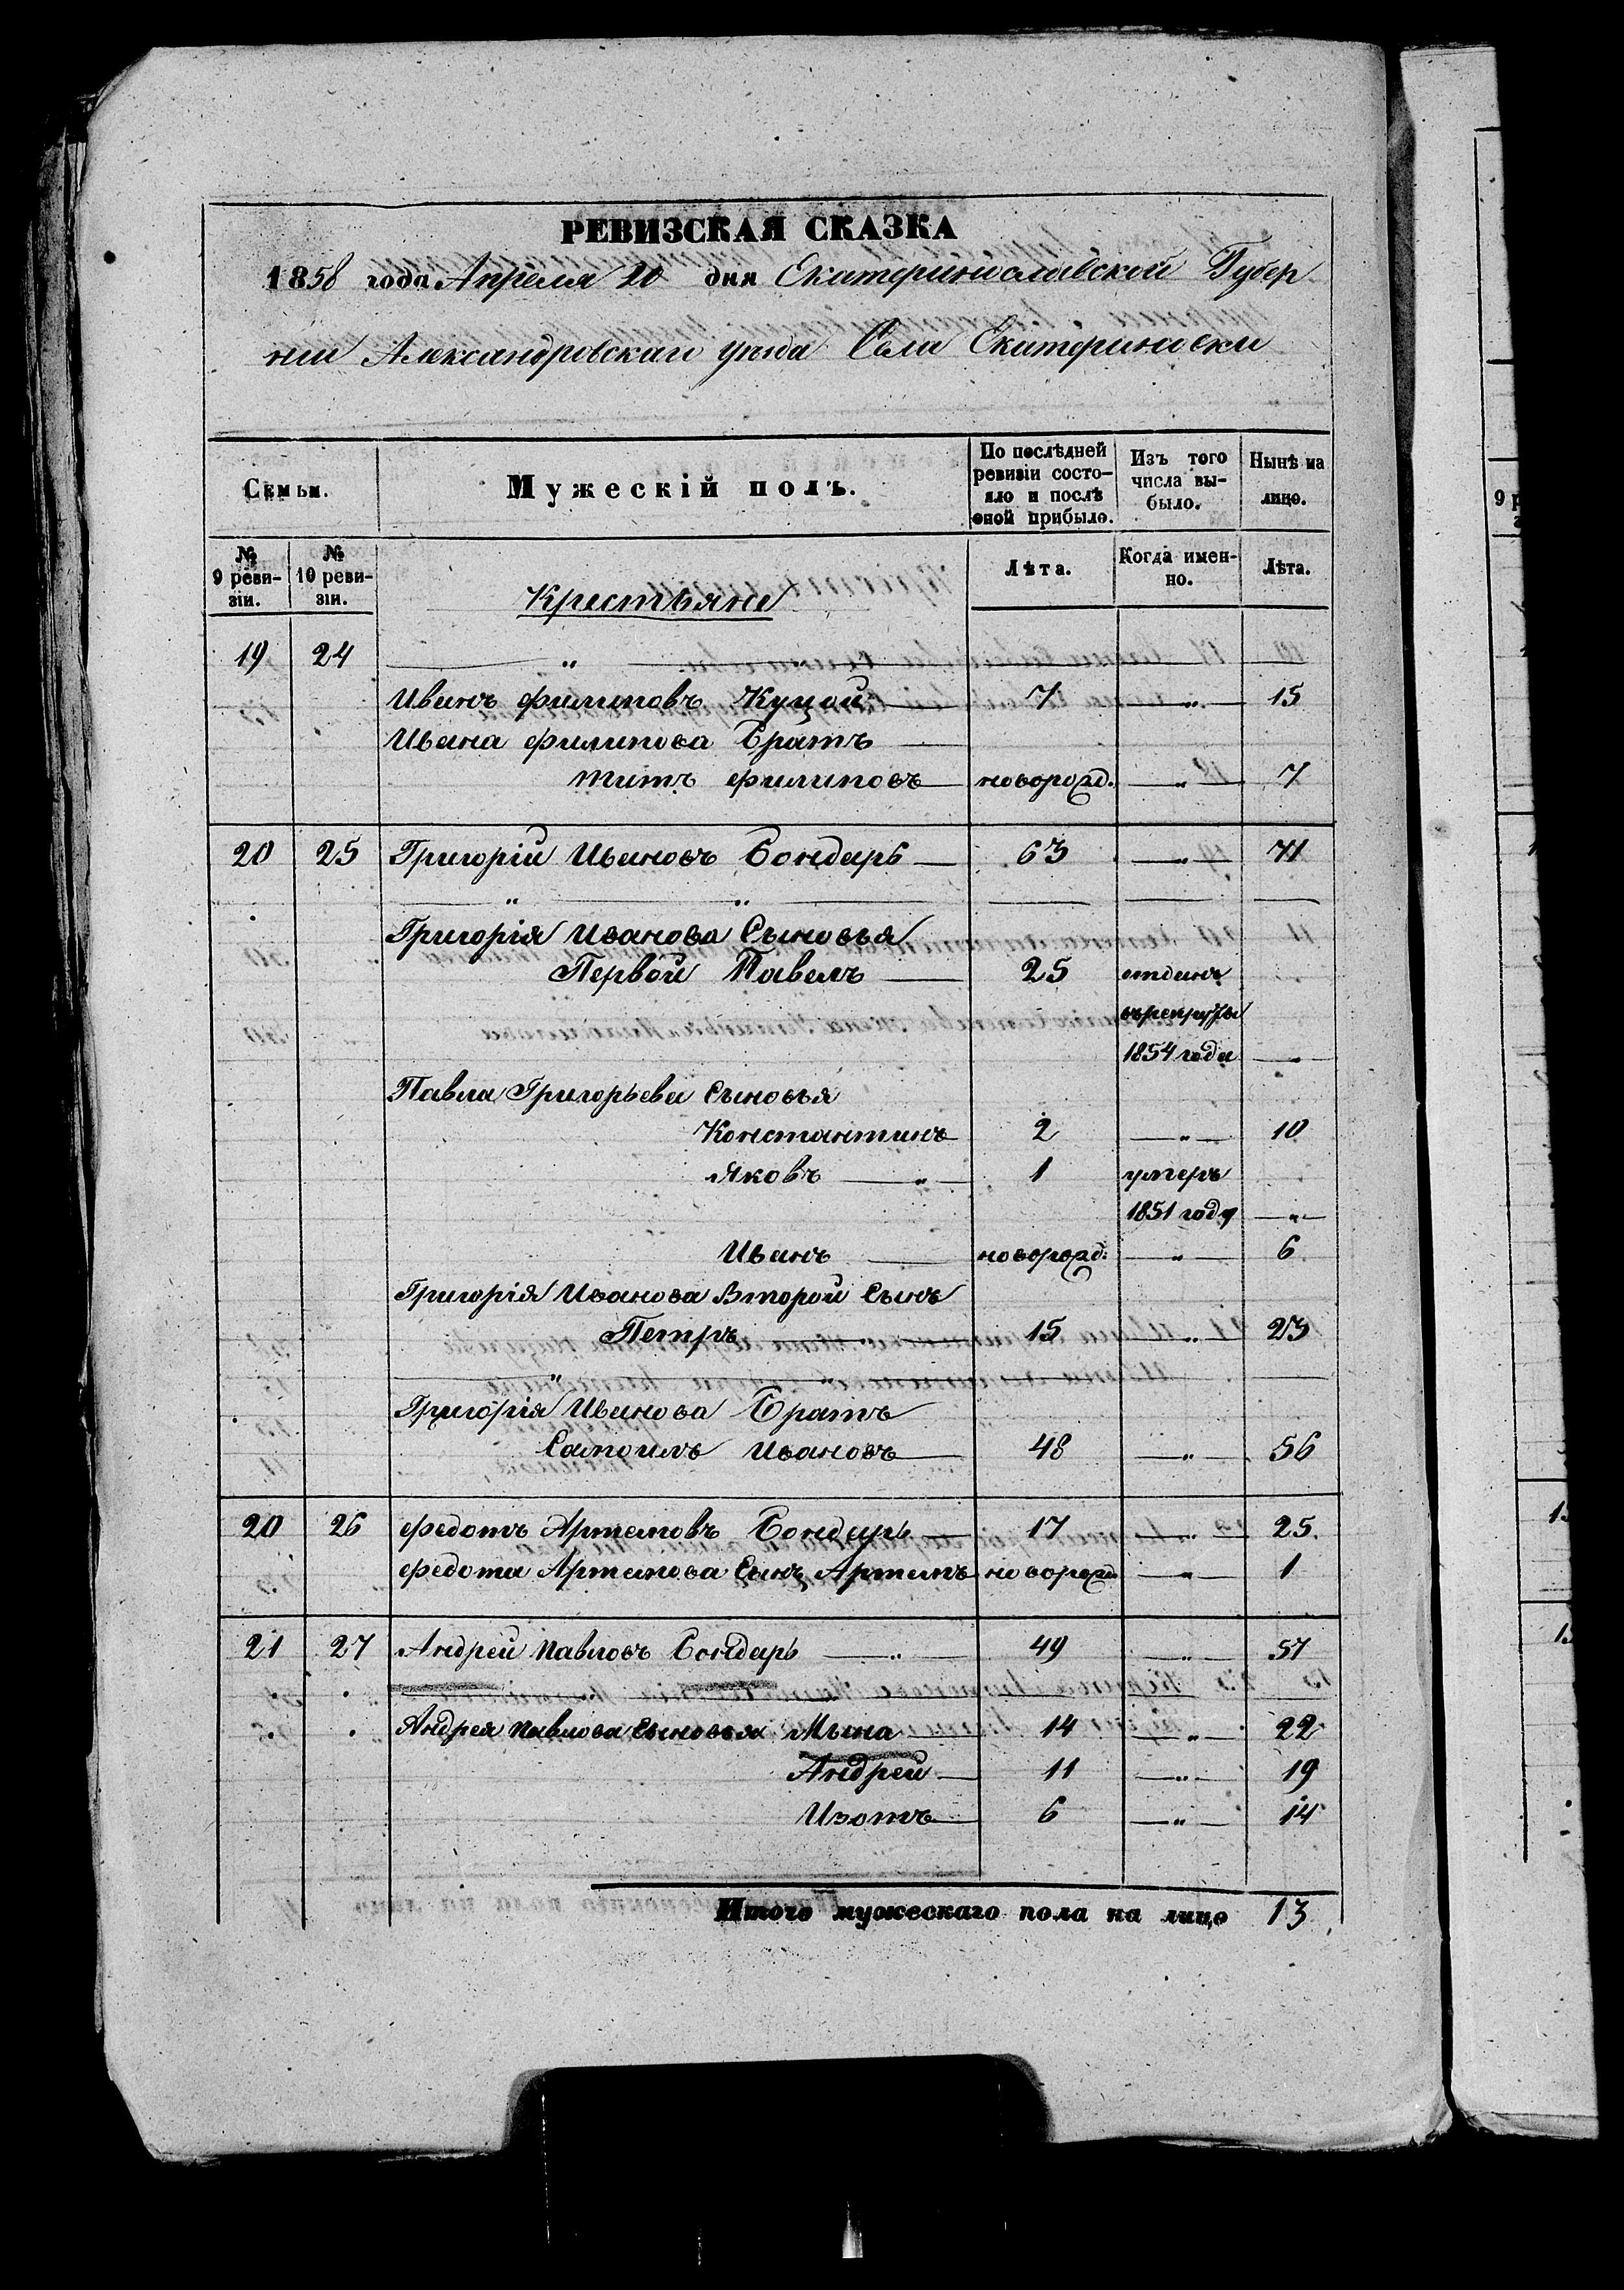 РЕВИЗСКАЯ СКАЗКА
1858 года Апреля 20 дня Екатеринославской Губер
нии Александровскаго уѣзда Села Екатериновки
Семьи.
Мужескій полъ.
По послѣдней ревизіи состояло и послѣ оной прибыло.
Изъ того числа выбыло.
Нынѣ на лицо.
№ 9 ревизіи.
№ 10 ревизіи.
Крестьяне
Лѣта.
Когда именно.
Лѣта.
19 24 „ „
Иванъ филиповъ Куцой 7 „ 15
Ивана филипова Братъ
титъ филиповъ новорожд. „ 7
20 25 Григорій Ивановъ Бондарь 63 „ 71
„ „
Григорія Иванова Сыновья
Первой Павелъ 25 отданъ
въ рекруты
1854 года „
Павла Григорьева Сыновья
Константинъ 2 „ 10
Яковъ „ 1 умеръ
1851 году „
Иванъ новорожд. „ 6
Григорія Иванова Второй Сынъ
Петръ „ 15 „ 23
„ „
Григорія Иванова Братъ
Самоилъ Ивановъ 48 „ 56
20 26 федотъ Артемовъ Бондарь 17 „ 25
федота Артемова Сынъ Артемъ новорожд „ 1
21 27 Андрей Павловъ Бондарь „ 49 „ 57
Андрея Павлова Сыновья Мина 14 „ 22
Андрей 11 „ 19
Изотъ 6 „ 14
Итого мужескаго пола на лицо 13